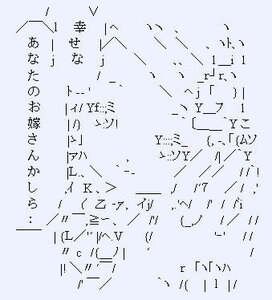 幸せな
あなたのお嫁さんかしら：